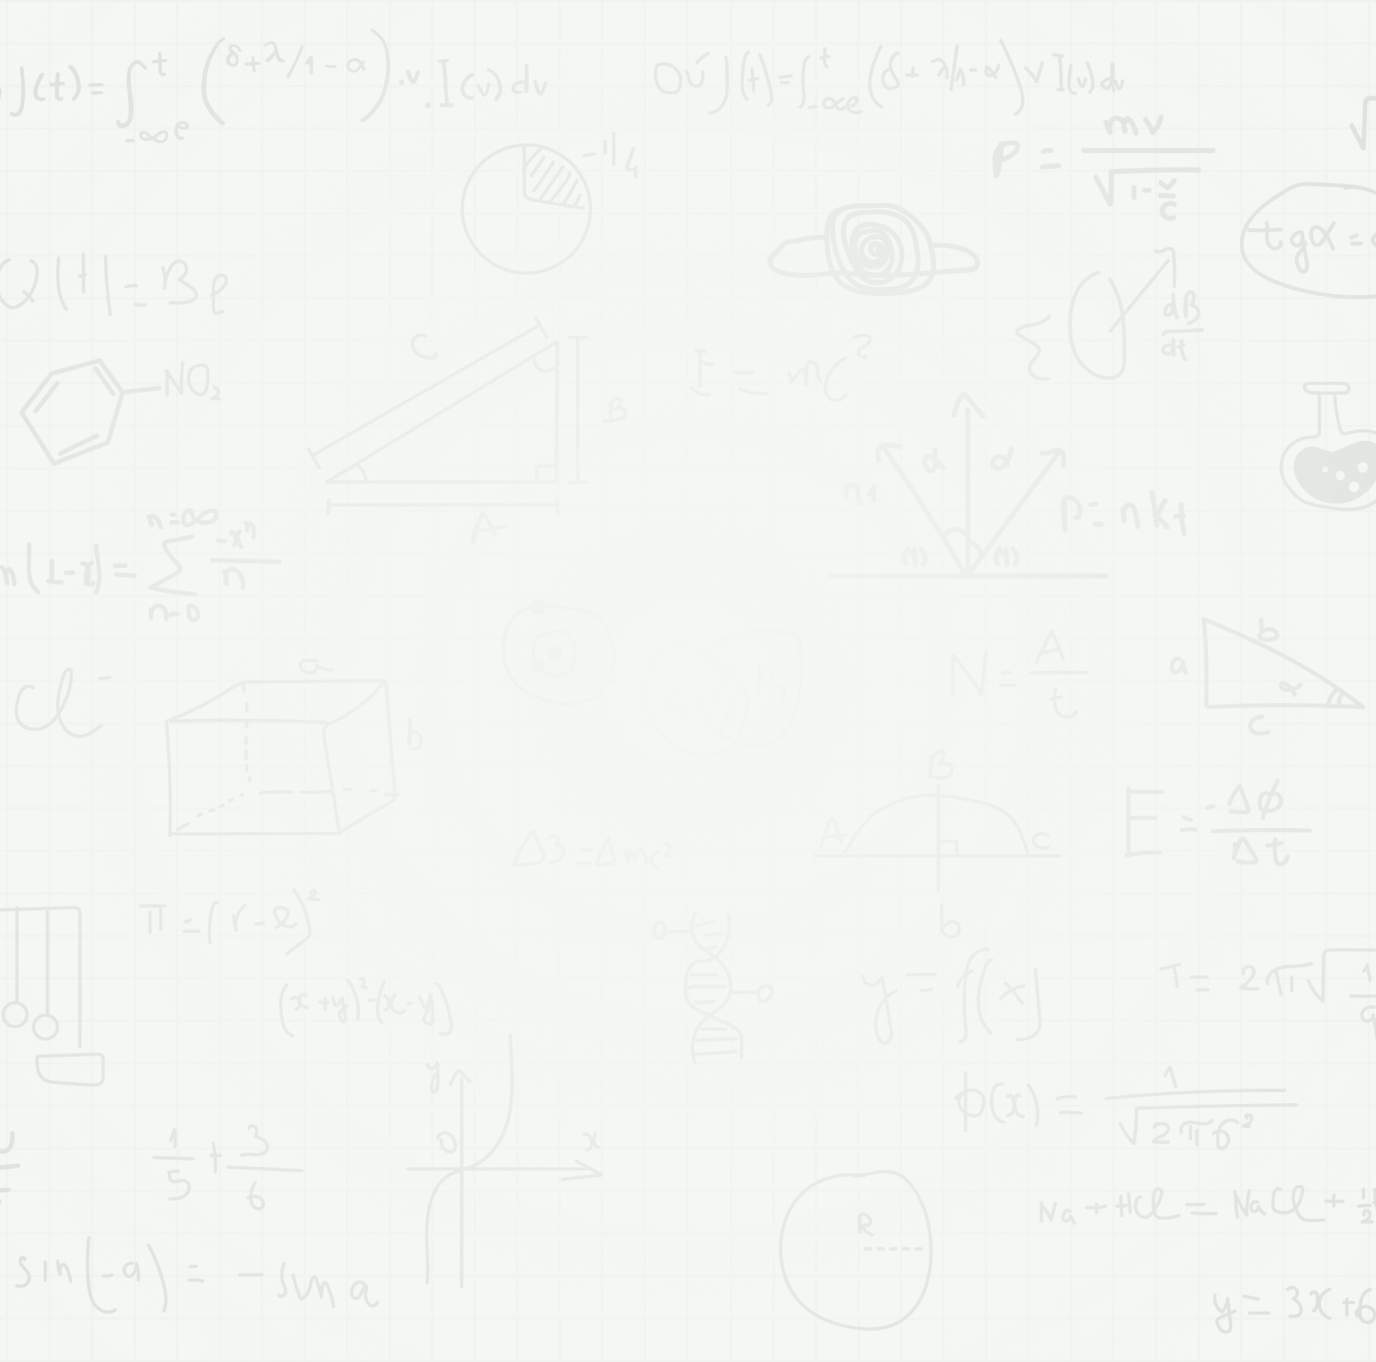 J(t) = ∫_{-∞}^{t} e (δ+λ/1-α).v .I(v)dv
OÚ J(t) = ∫_{-∞e}^{t} (δ+λ/1-α)v I(v)dv
-1/4
P = mv / √(1-v/c)
tgα =
Q(H) = Bl
dB/dt
NO₂
C
B
A
E = mc²
α α
n1
P = nkt
n(1-x) = ∑_{n=0}^{n=∞} -xⁿ/n
Cl⁻
a
b
N = A/t
b
a
α
c
B
A
C
b
E = -Δφ/Δt
Δ3 = Δmc²
π = (r-e)²
(x+y)²-(x-y)
y = f(x)
T = 2π√1
y
0
x
p(x) = 1/√2πσ²
1/5 + 3/6
R
Na + HCl = NaCl + 1/2
sin(-a) = -sin a
y = 3x+6